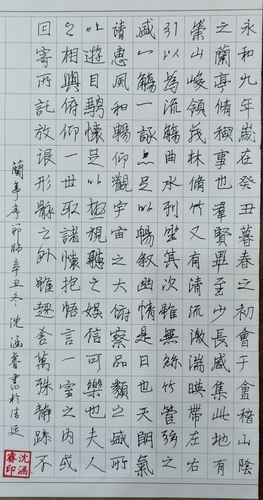 永和九年歲在癸丑暮春之初會于會稽山陰
之蘭亭脩禊事也群賢畢至少長咸集此地有
崇山峻領茂林脩竹又有清流激湍暎帶左右
引以為流觴曲水列坐其次雖無絲竹管弦之
盛一觴一詠亦足以暢叙幽情是日也天朗氣
清惠風和暢仰觀宇宙之大俯察品類之盛所
以遊目騁懷足以極視聽之娛信可樂也夫人
之相與俯仰一世取諸懷抱悟言一室之內或
因寄所託放浪形骸之外雖趣舍萬殊静躁不
蘭亭序節臨辛丑冬沈涵睿書於清
沈涵
睿印